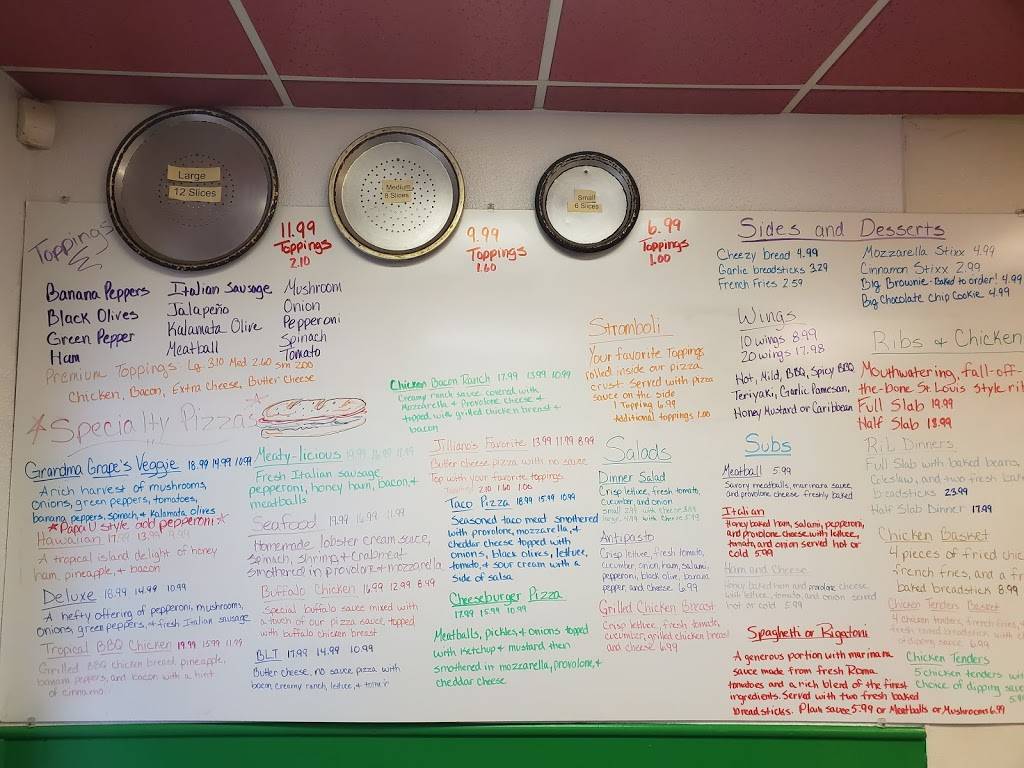 Large
12 Slices
Medium
8 Slices
Small
6 Slices
Toppings
11.99
Toppings
2.10
9.99
Toppings
1.60
6.99
Toppings
1.00
Banana Peppers
Black Olives
Green Pepper
Ham
Italian Sausage
Jalapeño
Kalamata Olive
Meatball
Mushroom
Onion
Pepperoni
Spinach
Tomato
Premium Toppings Lg 3.10 Med 2.60 sm 2.00
Chicken, Bacon, Extra Cheese, Butter Cheese
Specialty Pizzas
Grandma Grape's Veggie 18.99 14.99 10.99
A rich harvest of mushrooms,
onions, green peppers, tomatoes,
banana peppers, spinach, & Kalamata olives
*Papa U style add pepperoni*
Hawaiian 17.99 13.99 9.99
A tropical island delight of honey
ham, pineapple, & bacon
Deluxe 18.99 14.99 10.99
A hefty offering of pepperoni, mushrooms,
onions, green peppers, & fresh Italian sausage
Tropical BBQ Chicken 19.99 15.99 11.99
Grilled BBQ chicken breast, pineapple,
banana peppers, and bacon with a hint
of cinnamon
Meaty-licious
Fresh Italian sausage,
pepperoni, honey ham, bacon, &
meatballs
Seafood 19.99 16.99 11.99
Homemade lobster cream sauce,
spinach, shrimp, & crabmeat
smothered in provolone & mozzarella
Buffalo Chicken 16.99 12.99 8.99
Special buffalo sauce mixed with
a touch of our pizza sauce, topped
with buffalo chicken breast
BLT 17.99 14.99 10.99
Butter cheese, no sauce pizza with
bacon, creamy ranch, lettuce, & tomato
Chicken Bacon Ranch 17.99 13.99 10.99
Creamy ranch sauce covered with
Mozzarella & Provolone cheese &
topped with grilled chicken breast &
bacon
Jilliano's Favorite 13.99 11.99 8.99
Butter cheese pizza with no sauce
Top with your favorite toppings.
2.10 1.60 1.00
Taco Pizza 18.99 15.99 10.99
Seasoned taco meat smothered
with provolone, mozzarella, &
cheddar cheese topped with
onions, black olives, lettuce,
tomato, & sour cream with a
side of salsa
Cheeseburger Pizza
17.99 15.99 10.99
Meatballs, pickles, & onions topped
with ketchup & mustard then
smothered in mozzarella, provolone, &
cheddar cheese
Stromboli
Your favorite Toppings
rolled inside our pizza
crust. Served with pizza
sauce on the side
1 Topping 6.99
Additional toppings 1.00
Salads
Dinner Salad
Crisp lettuce, fresh tomato,
cucumber, and onion
small 2.99 with cheese 3.99
large 4.99 with cheese 5.99
Antipasto
Crisp lettuce, fresh tomato,
cucumber, onion, ham, salami,
pepperoni, black olive, banana
pepper, and cheese 6.99
Grilled Chicken Breast
Crisp lettuce, fresh tomato,
cucumber, grilled chicken breast
and cheese 6.99
Sides and Desserts
Cheezy bread 4.99
Garlic breadsticks 3.29
French Fries 2.59
Mozzarella Stixx 4.99
Cinnamon Stixx 2.99
Big Brownie-Baked to order! 4.99
Big Chocolate chip Cookie 4.99
Wings
10 wings 8.99
20 wings 17.98
Hot, Mild, BBQ, Spicy BBQ
Teriyaki, Garlic Parmesan,
Honey Mustard or Caribbean
Subs
Meatball 5.99
Savory meatballs, marinara sauce,
and provolone cheese freshly baked
Italian
Honey baked ham, salami, pepperoni,
and provolone cheese with lettuce,
tomato, and onion served hot or
cold 5.99
Ham and Cheese
Honey baked ham and provolone cheese,
with lettuce, tomato, and onion served
hot or cold 5.99
Spaghetti or Rigatoni
A generous portion with marinara
sauce made from fresh Roma
tomatoes and a rich blend of the finest
ingredients. Served with two fresh baked
breadsticks. Plain sauce 5.99 or Meatballs or Mushrooms 6.99
Ribs & Chicken
Mouthwatering, fall-off-
the-bone St. Louis Style
Full Slab 19.99
Half Slab 13.99
Rib Dinners
Full Slab with baked beans,
Coleslaw, and two fresh
breadsticks 23.99
Half Slab Dinner 17.99
Chicken Basket
4 pieces of fried
french fries, and a
baked breadstick 8.99
Chicken Tenders Basket
4 chicken tenders, french fries,
fresh baked breadstick with
dipping sauce 6.99
Chicken Tenders
5 chicken tenders with
choice of dipping sauce
5.99